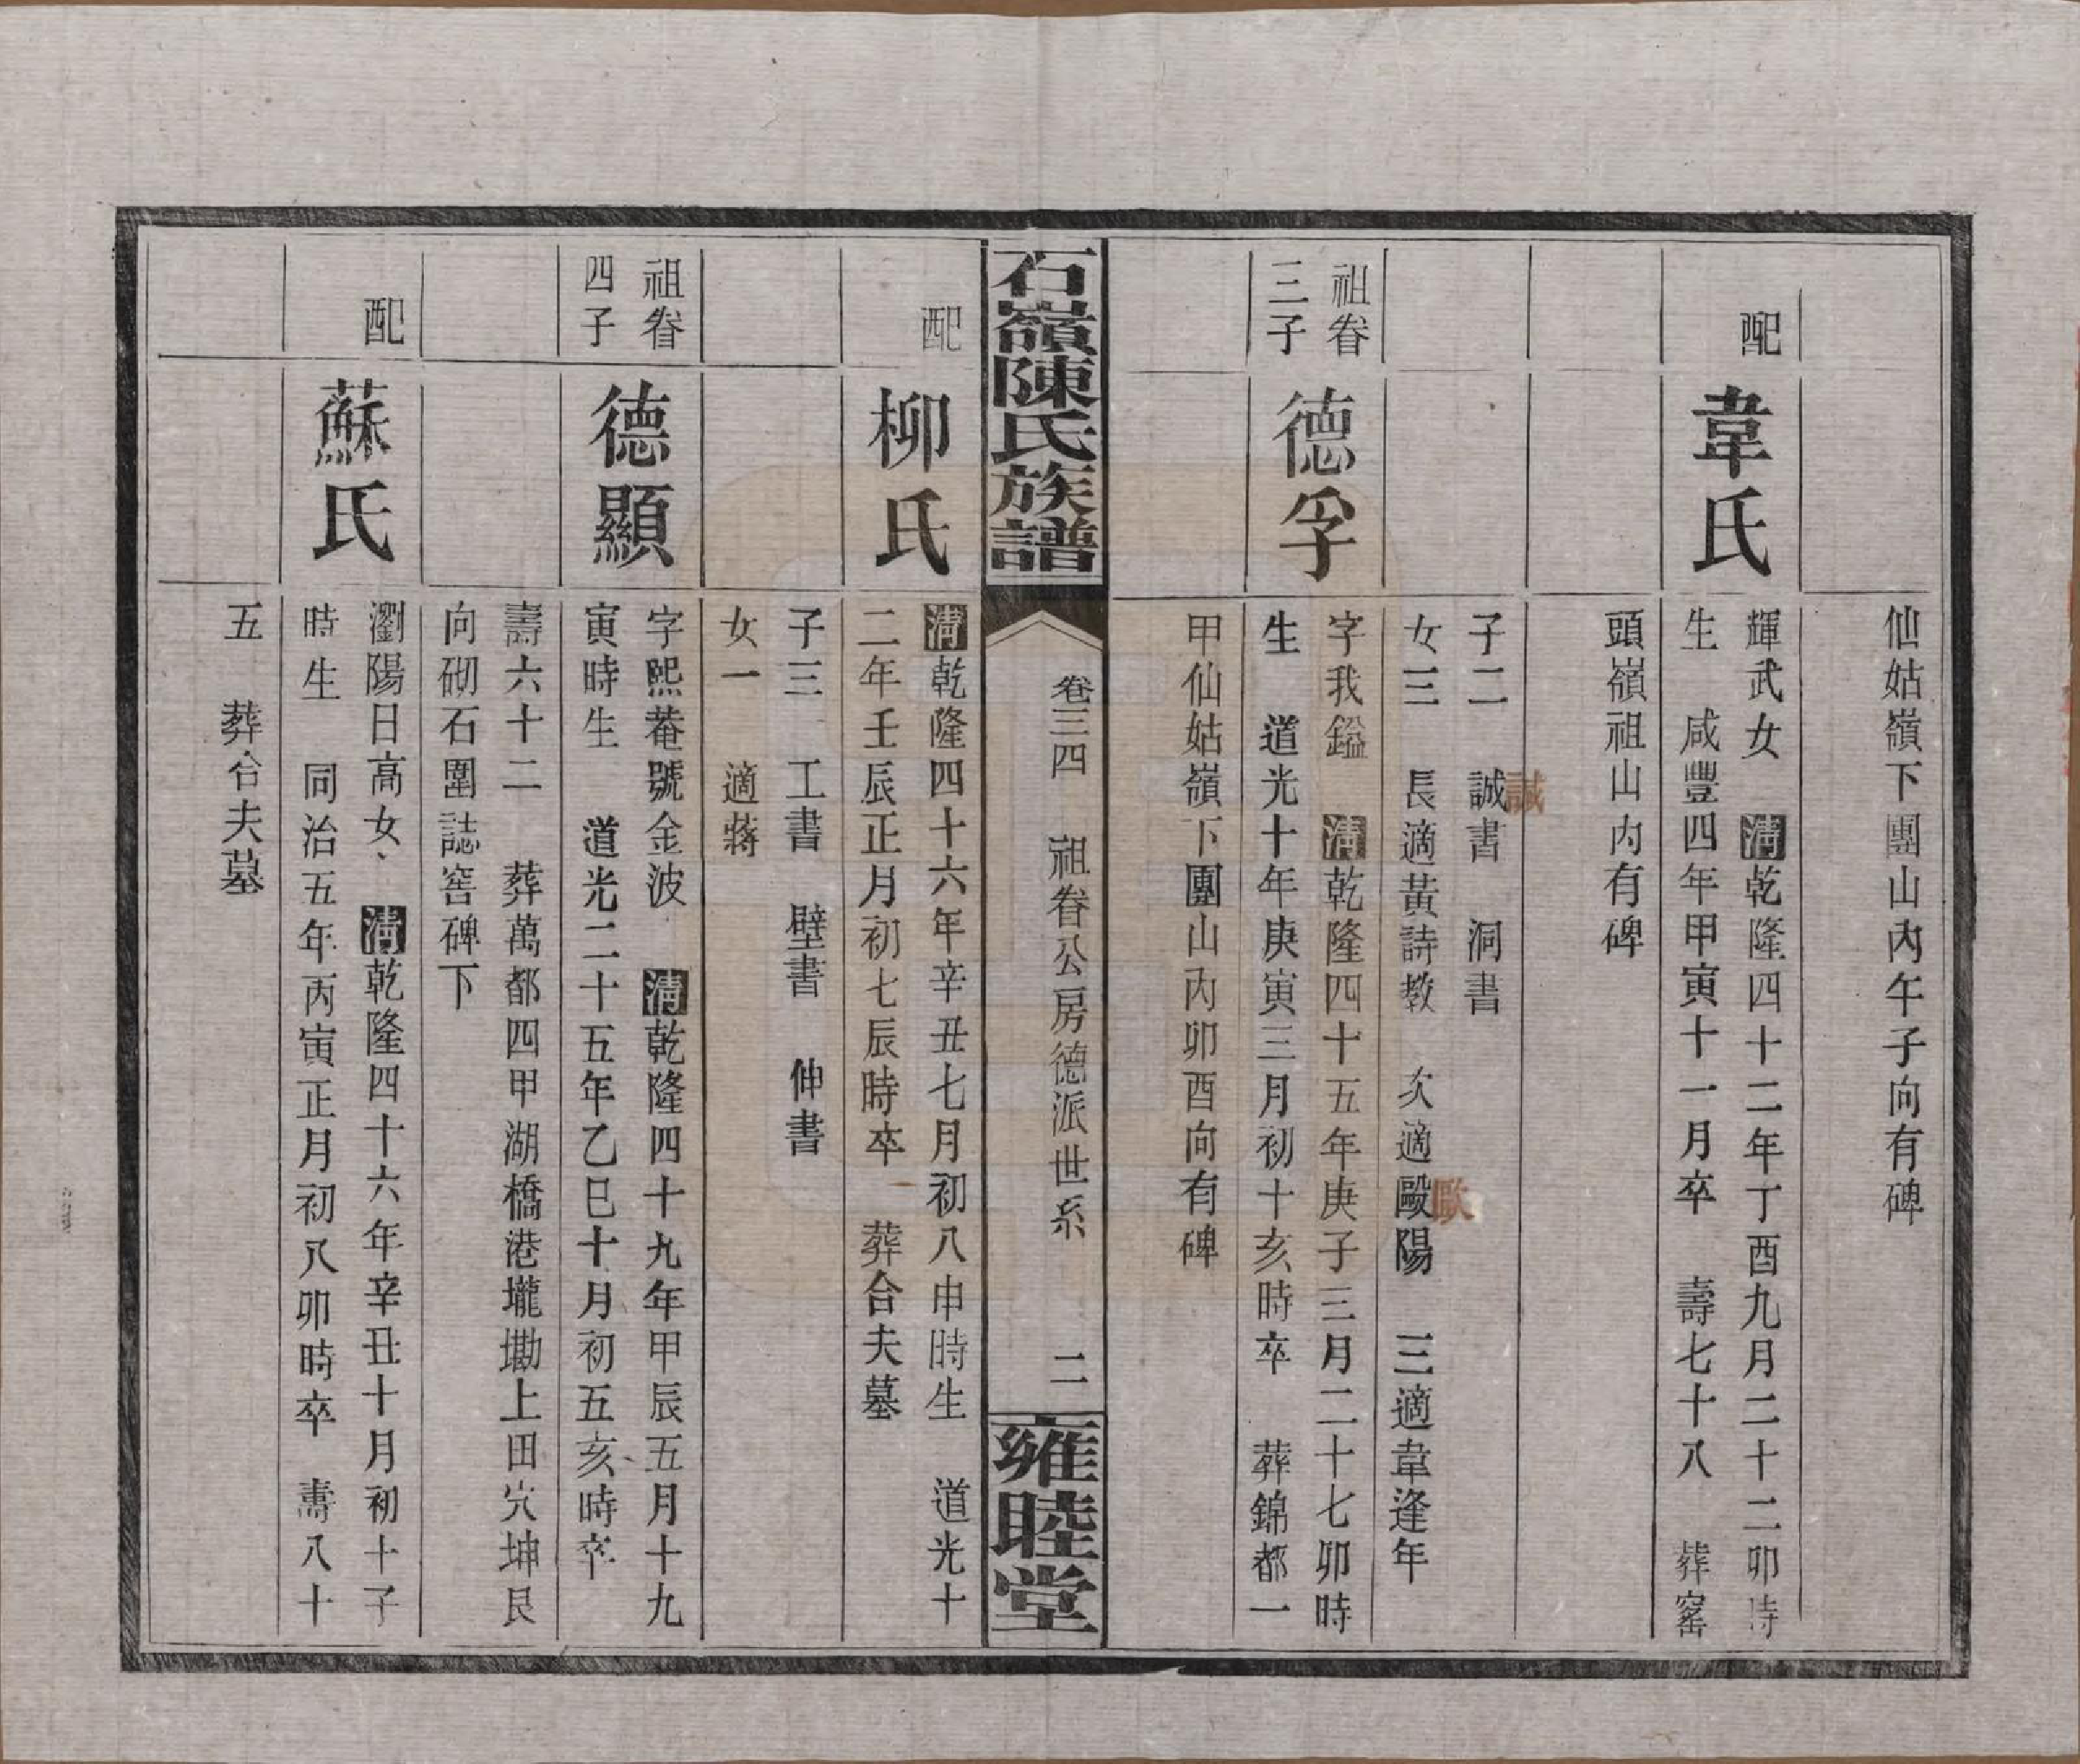 仙姑嶺下團山內午子向有碑
配
韋氏
輝武女　清乾隆四十二年丁酉九月二十二卯時
生　咸豐四年甲寅十一月卒　壽七十八　葬窰
頭嶺祖山內有碑
子二　誠書　洞書
誠
女三　長適黃詩教　次適毆陽　三適韋逢年
歐
祖眷
三子
德孚
字我鎰　清乾隆四十五年庚子三月二十七卯時
生　道光十年庚寅三月初十亥時卒　葬錦都一
甲仙姑嶺下團山內卯酉向有碑
石嶺陳氏族譜
卷三四　祖眷公房德派世系　二
雍睦堂
配
柳氏
清乾隆四十六年辛丑七月初八申時生　道光十
二年壬辰正月初七辰時卒　葬合夫墓
子三　工書　壁書　伸書
女一　適蔣
祖眷
四子
德顯
字熙菴號金波　清乾隆四十九年甲辰五月十九
寅時生　道光二十五年乙巳十月初五亥時卒
壽六十二　葬萬都四甲湖橋港壠墈上田穴坤艮
向砌石圍誌窖碑下
配
蘇氏
瀏陽日高女　清乾隆四十六年辛丑十月初十子
時生　同治五年丙寅正月初八卯時卒　壽八十
五　葬合夫墓